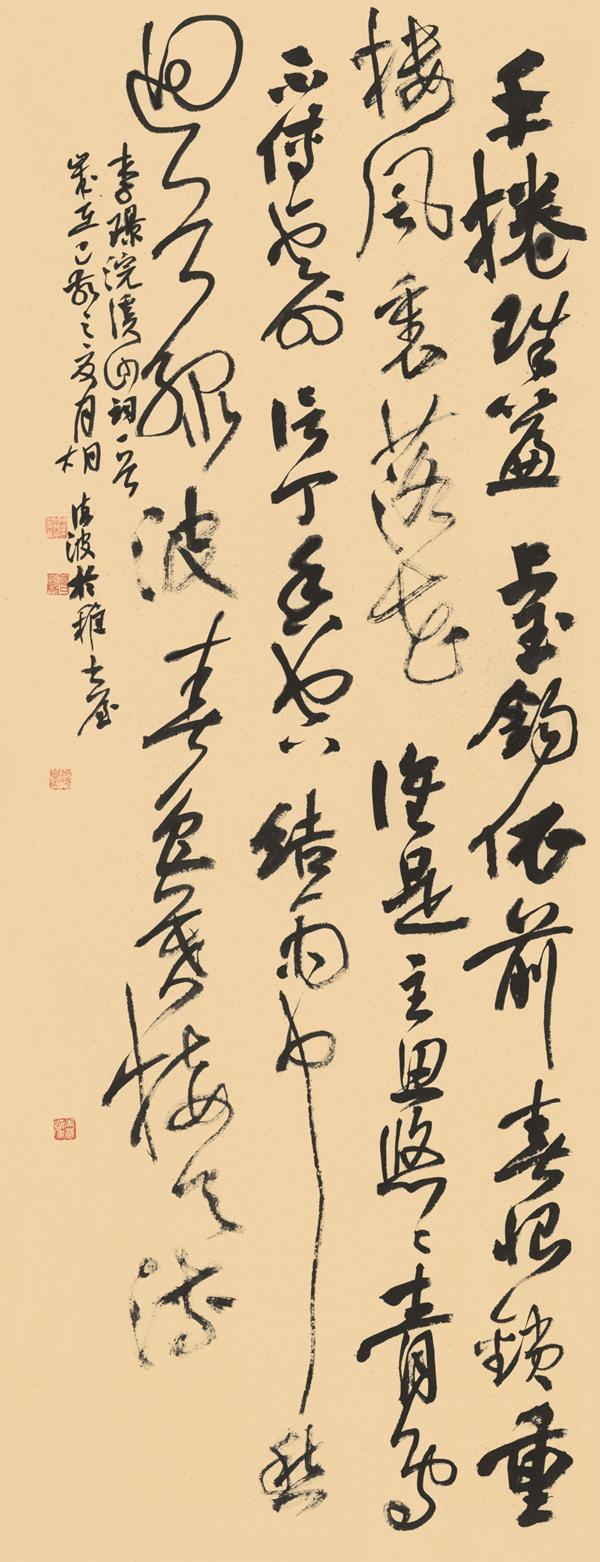 手捲珠簾上玉鉤依前春恨鎖重
樓風裏落花誰是主思悠々青鳥
不傳雲外信丁香空結雨中愁
迴首綠波春色暮接天流
李璟浣溪沙詞一首
歲在己亥之夏月 波於雅士屋